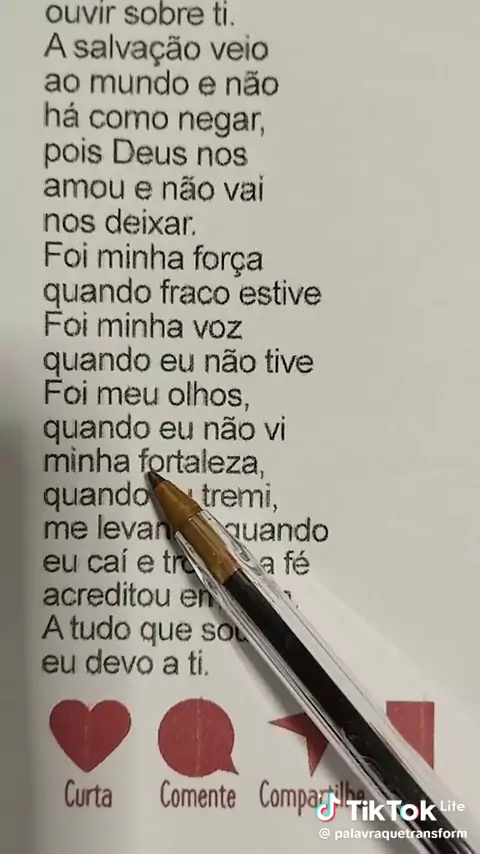 ouvir sobre ti.
A salvação veio
ao mundo e não
há como negar,
pois Deus nos
amou e não vai
nos deixar.
Foi minha força
quando fraco estive
Foi minha voz
quando eu não tive
Foi meu olhos,
quando eu não vi
minha fortaleza,
quando tremi,
me quando
eu caí e a fé
acreditou
A tudo que
eu devo a ti.
Curta Comente Compartilhe
TikTok Lite
@palavraquetransform